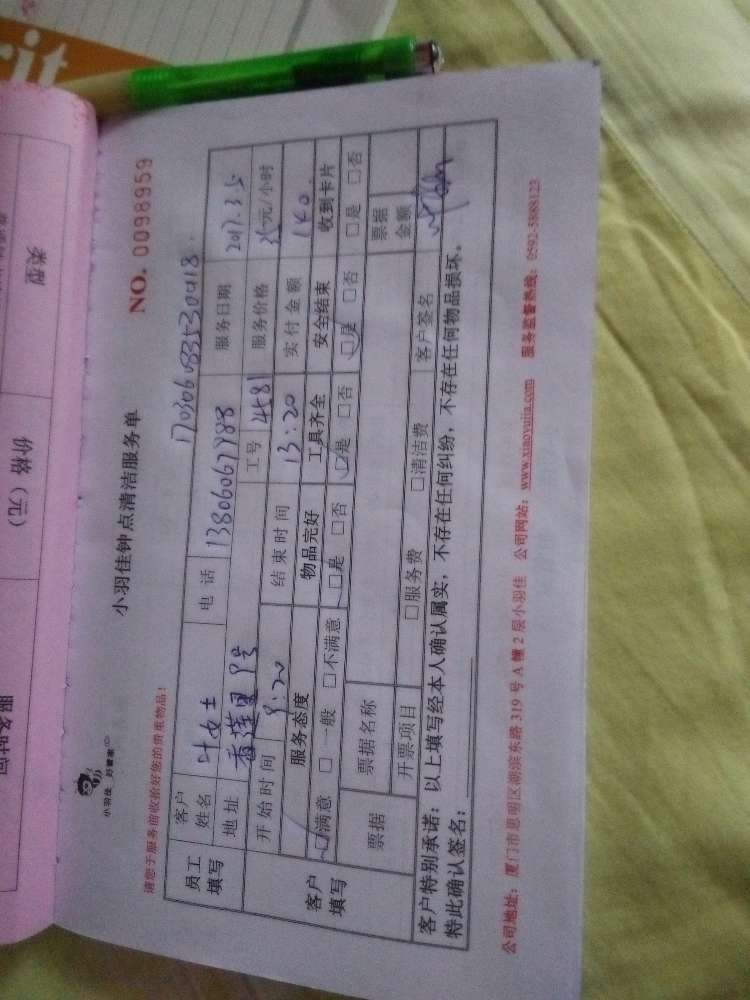 rit
类型
价格（元）
服务时间
小羽佳
小羽佳钟点清洁服务单
NO. 0098959
请您于服务前收拾好您的贵重物品！
170306083530418
员工填写
客户姓名 叶女士 电话 13806067988 服务日期 2017.3.5
地址 香莲里9号 工号 4581 服务价格 35元/小时
开始时间 9:20 结束时间 13:20 实付金额 140
客户填写
服务态度 物品完好 工具齐全 安全结束 收到卡片
□满意 □一般 □不满意 □是 □否 □是 □否 □是 □否 □是 □否
票据 票据名称 票据金额
开票项目 □服务费 □清洁费 客户签名
客户特别承诺：以上填写经本人确认属实，不存在任何纠纷，不存在任何物品损坏。
特此确认签名：
公司地址：厦门市思明区湖滨东路319号A幢2层小羽佳 公司网站：www.xiaoyujia.com 服务监督热线：0592-5888123